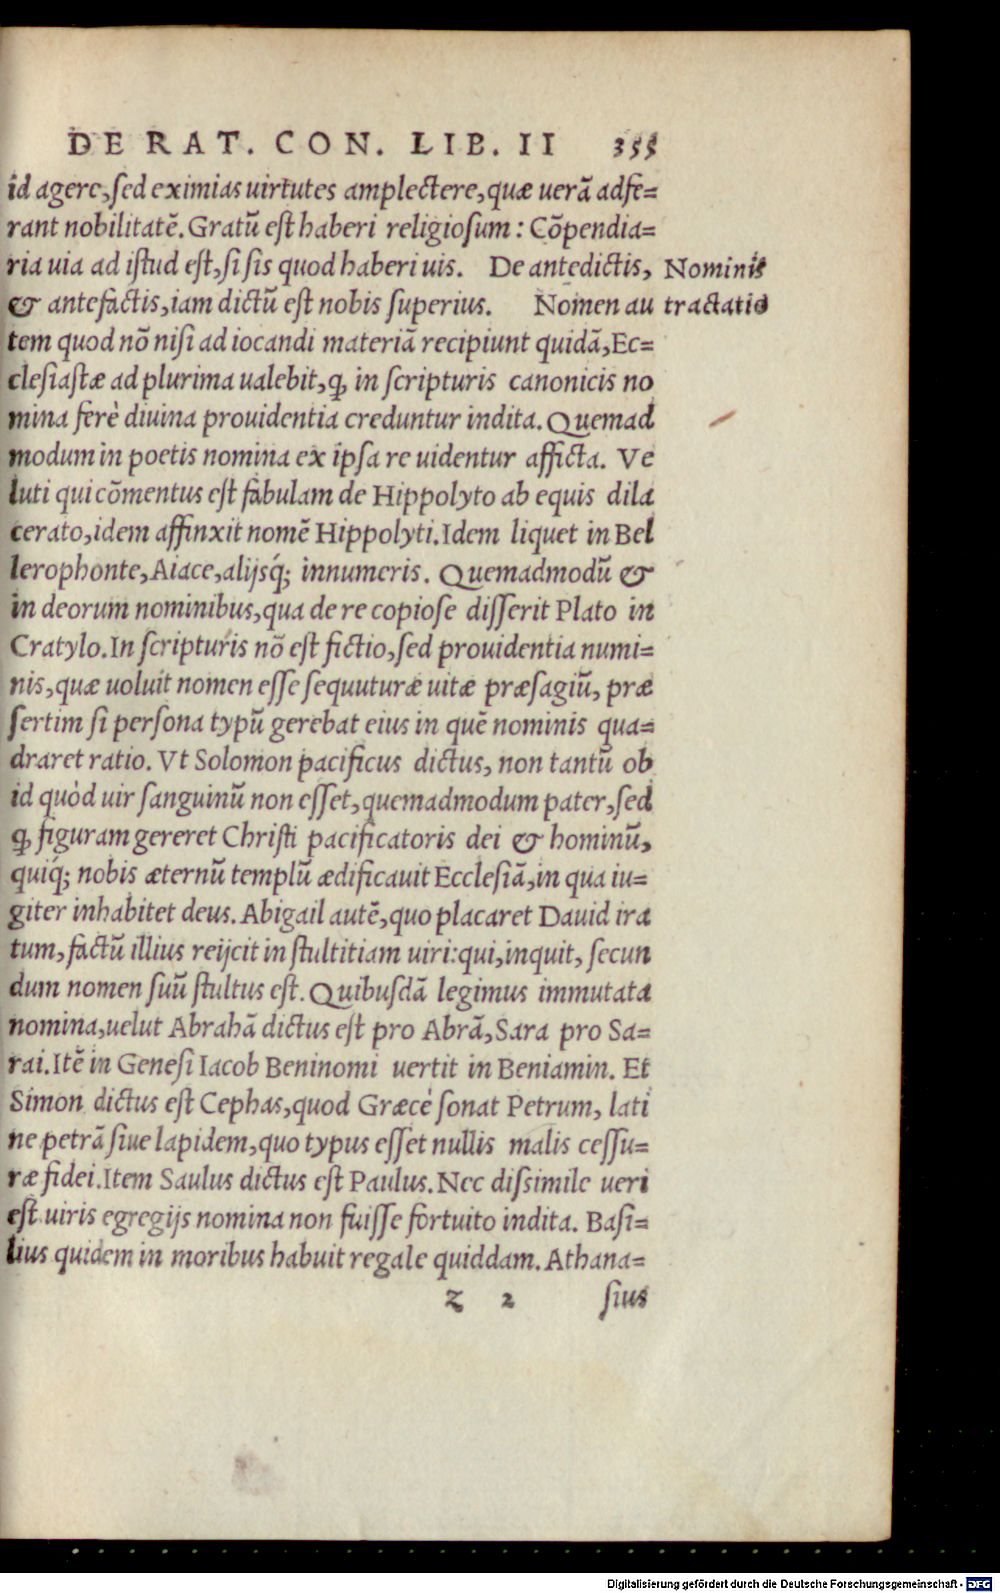 DE RAT. CON. LIB. II 355
id agere, sed eximias uirtutes amplectere, quæ uerā adfe=
rant nobilitatē. Gratū est haberi religiosum: Cōpendia=
ria uia ad istud est, si sis quod haberi uis. De antedictis,
Nominis
& antefactis, iam dictū est nobis superius. Nomen au
tractatio
tem quod nō nisi ad iocandi materiā recipiunt quidā, Ec=
clesiastæ ad plurima ualebit, ꝙ in scripturis canonicis no
mina ferè diuina prouidentia creduntur indita. Quemad
modum in poetis nomina ex ipsa re uidentur afficta. Ve
luti qui cōmentus est fabulam de Hippolyto ab equis dila
cerato, idem affinxit nomē Hippolyti. Idem liquet in Bel
lerophonte, Aiace, alijsq́; innumeris. Quemadmodū &
in deorum nominibus, qua de re copiose disserit Plato in
Cratylo. In scripturis nō est fictio, sed prouidentia numi=
nis, quæ uoluit nomen esse sequuturæ uitæ præsagiū, præ
sertim si persona typū gerebat eius in quē nominis qua=
draret ratio. Vt Solomon pacificus dictus, non tantū ob
id quòd uir sanguinū non esset, quemadmodum pater, sed
ꝙ figuram gereret Christi pacificatoris dei & hominū,
quiq́; nobis æternū templū ædificauit Ecclesiā, in qua iu=
giter inhabitet deus. Abigail autē, quo placaret Dauid ira
tum, factū illius reijcit in stultitiam uiri: qui, inquit, secun
dum nomen suū stultus est. Quibusdā legimus immutata
nomina, uelut Abrahā dictus est pro Abrā, Sara pro Sa=
rai. Itē in Genesi Iacob Beninomi uertit in Beniamin. Et
Simon dictus est Cephas, quod Græcè sonat Petrum, lati
ne petrā siue lapidem, quo typus esset nullis malis cessu=
ræ fidei. Item Saulus dictus est Paulus. Nec dissimile ueri
est uiris egregijs nomina non fuisse fortuito indita. Basi=
lius quidem in moribus habuit regale quiddam. Athana=
z 2 sius
Digitalisierung gefördert durch die Deutsche Forschungsgemeinschaft - DFG